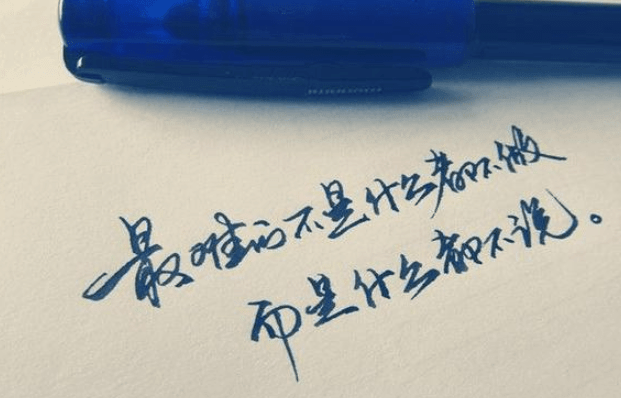 最难的不是什么都不做
而是什么都不说。